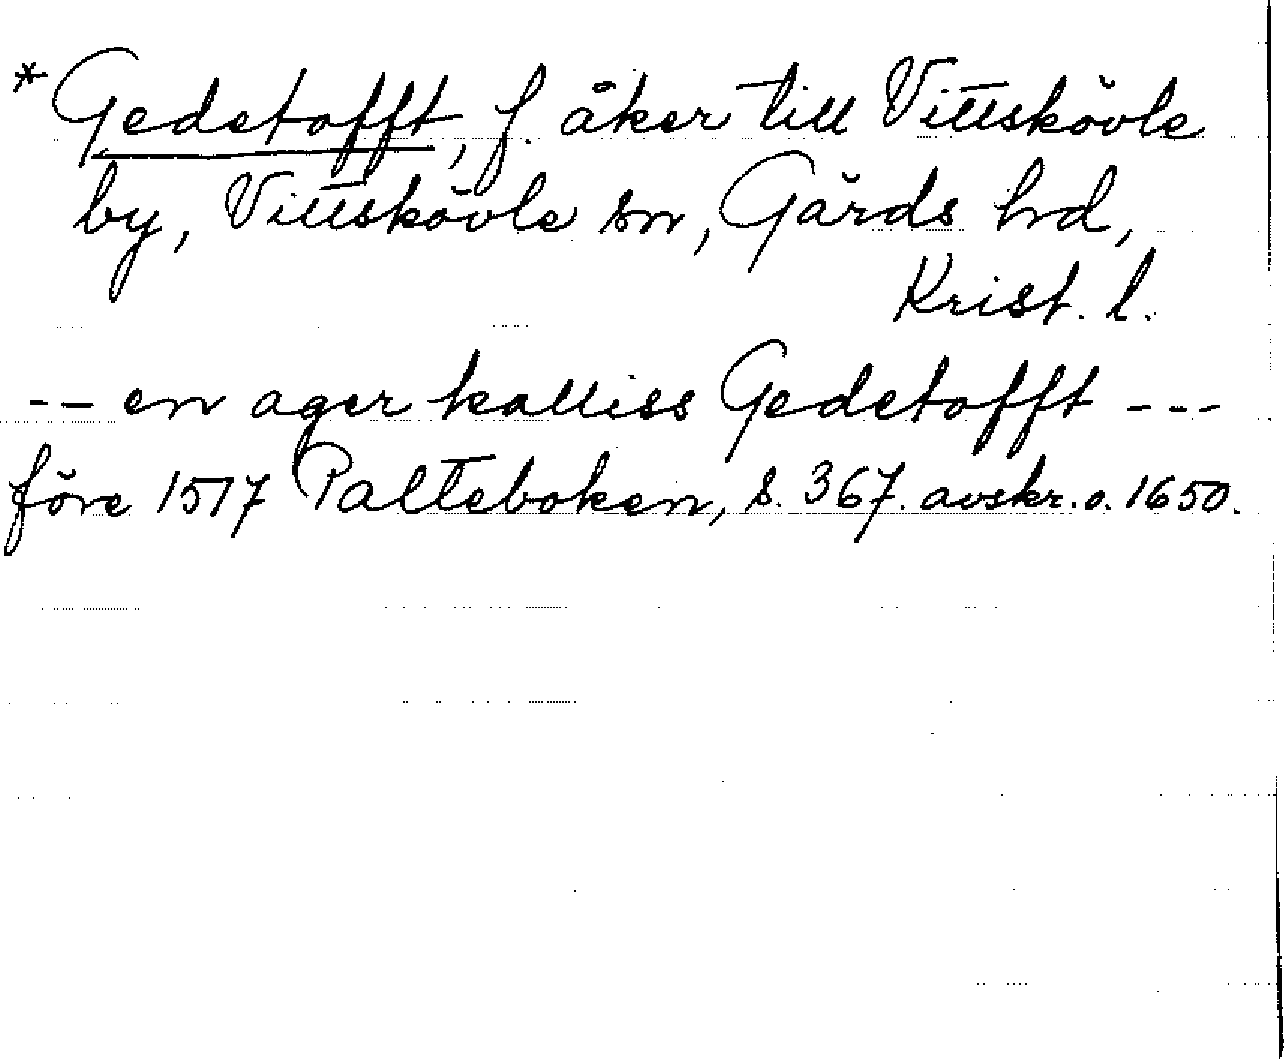 *Gedetofft, f. åker till Vittskövle
by, Vittskövle sn, Gärds hd,
Krist. l.
-- en ager kalliss Gedetofft ---
före 1517 Palteboken, s. 367. avskr. o. 1650.